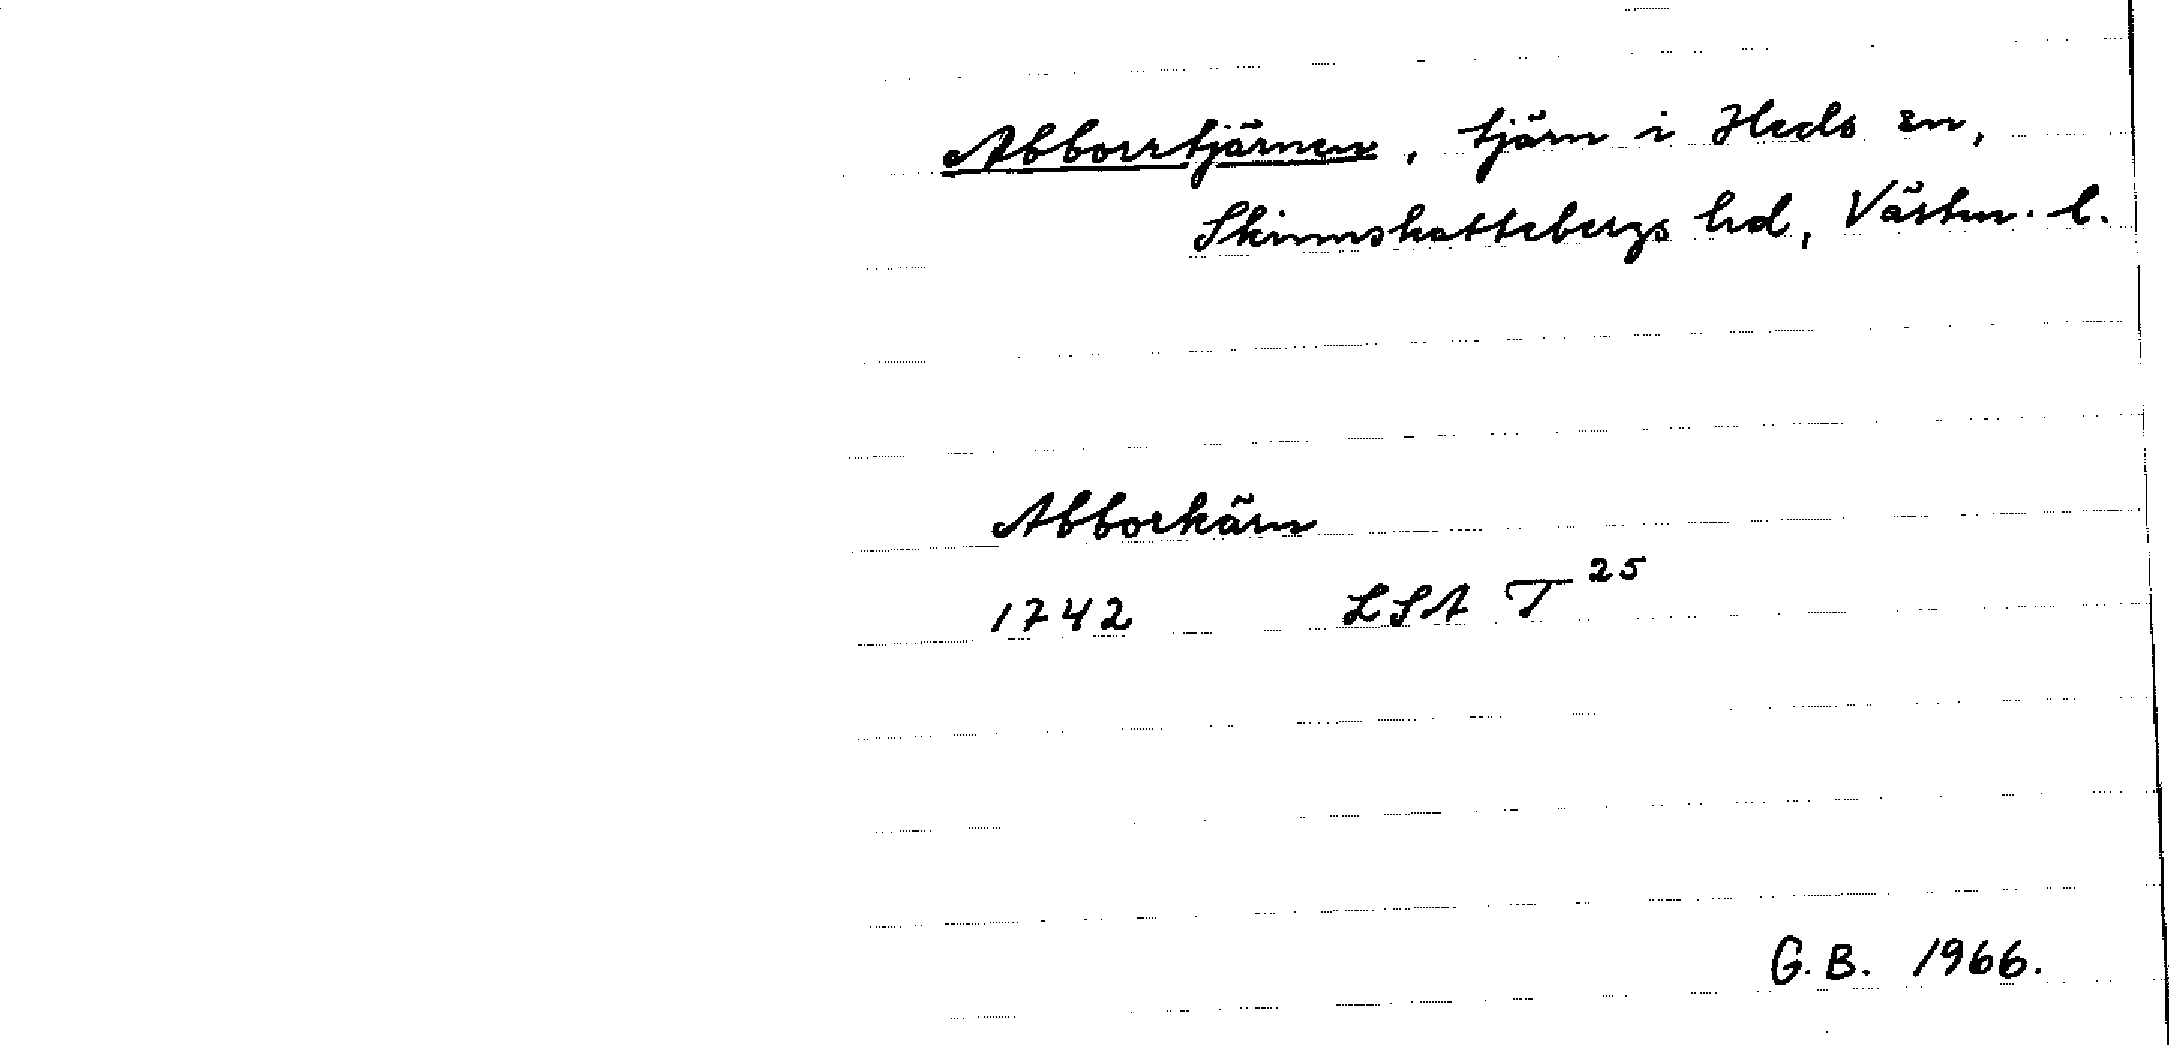 Abborrtjärnen, tjärn i Heds sn,
Skinnskattebergs hd, Västm. l.
Abborkärn
1742 LSA T 25
G.B. 1966.